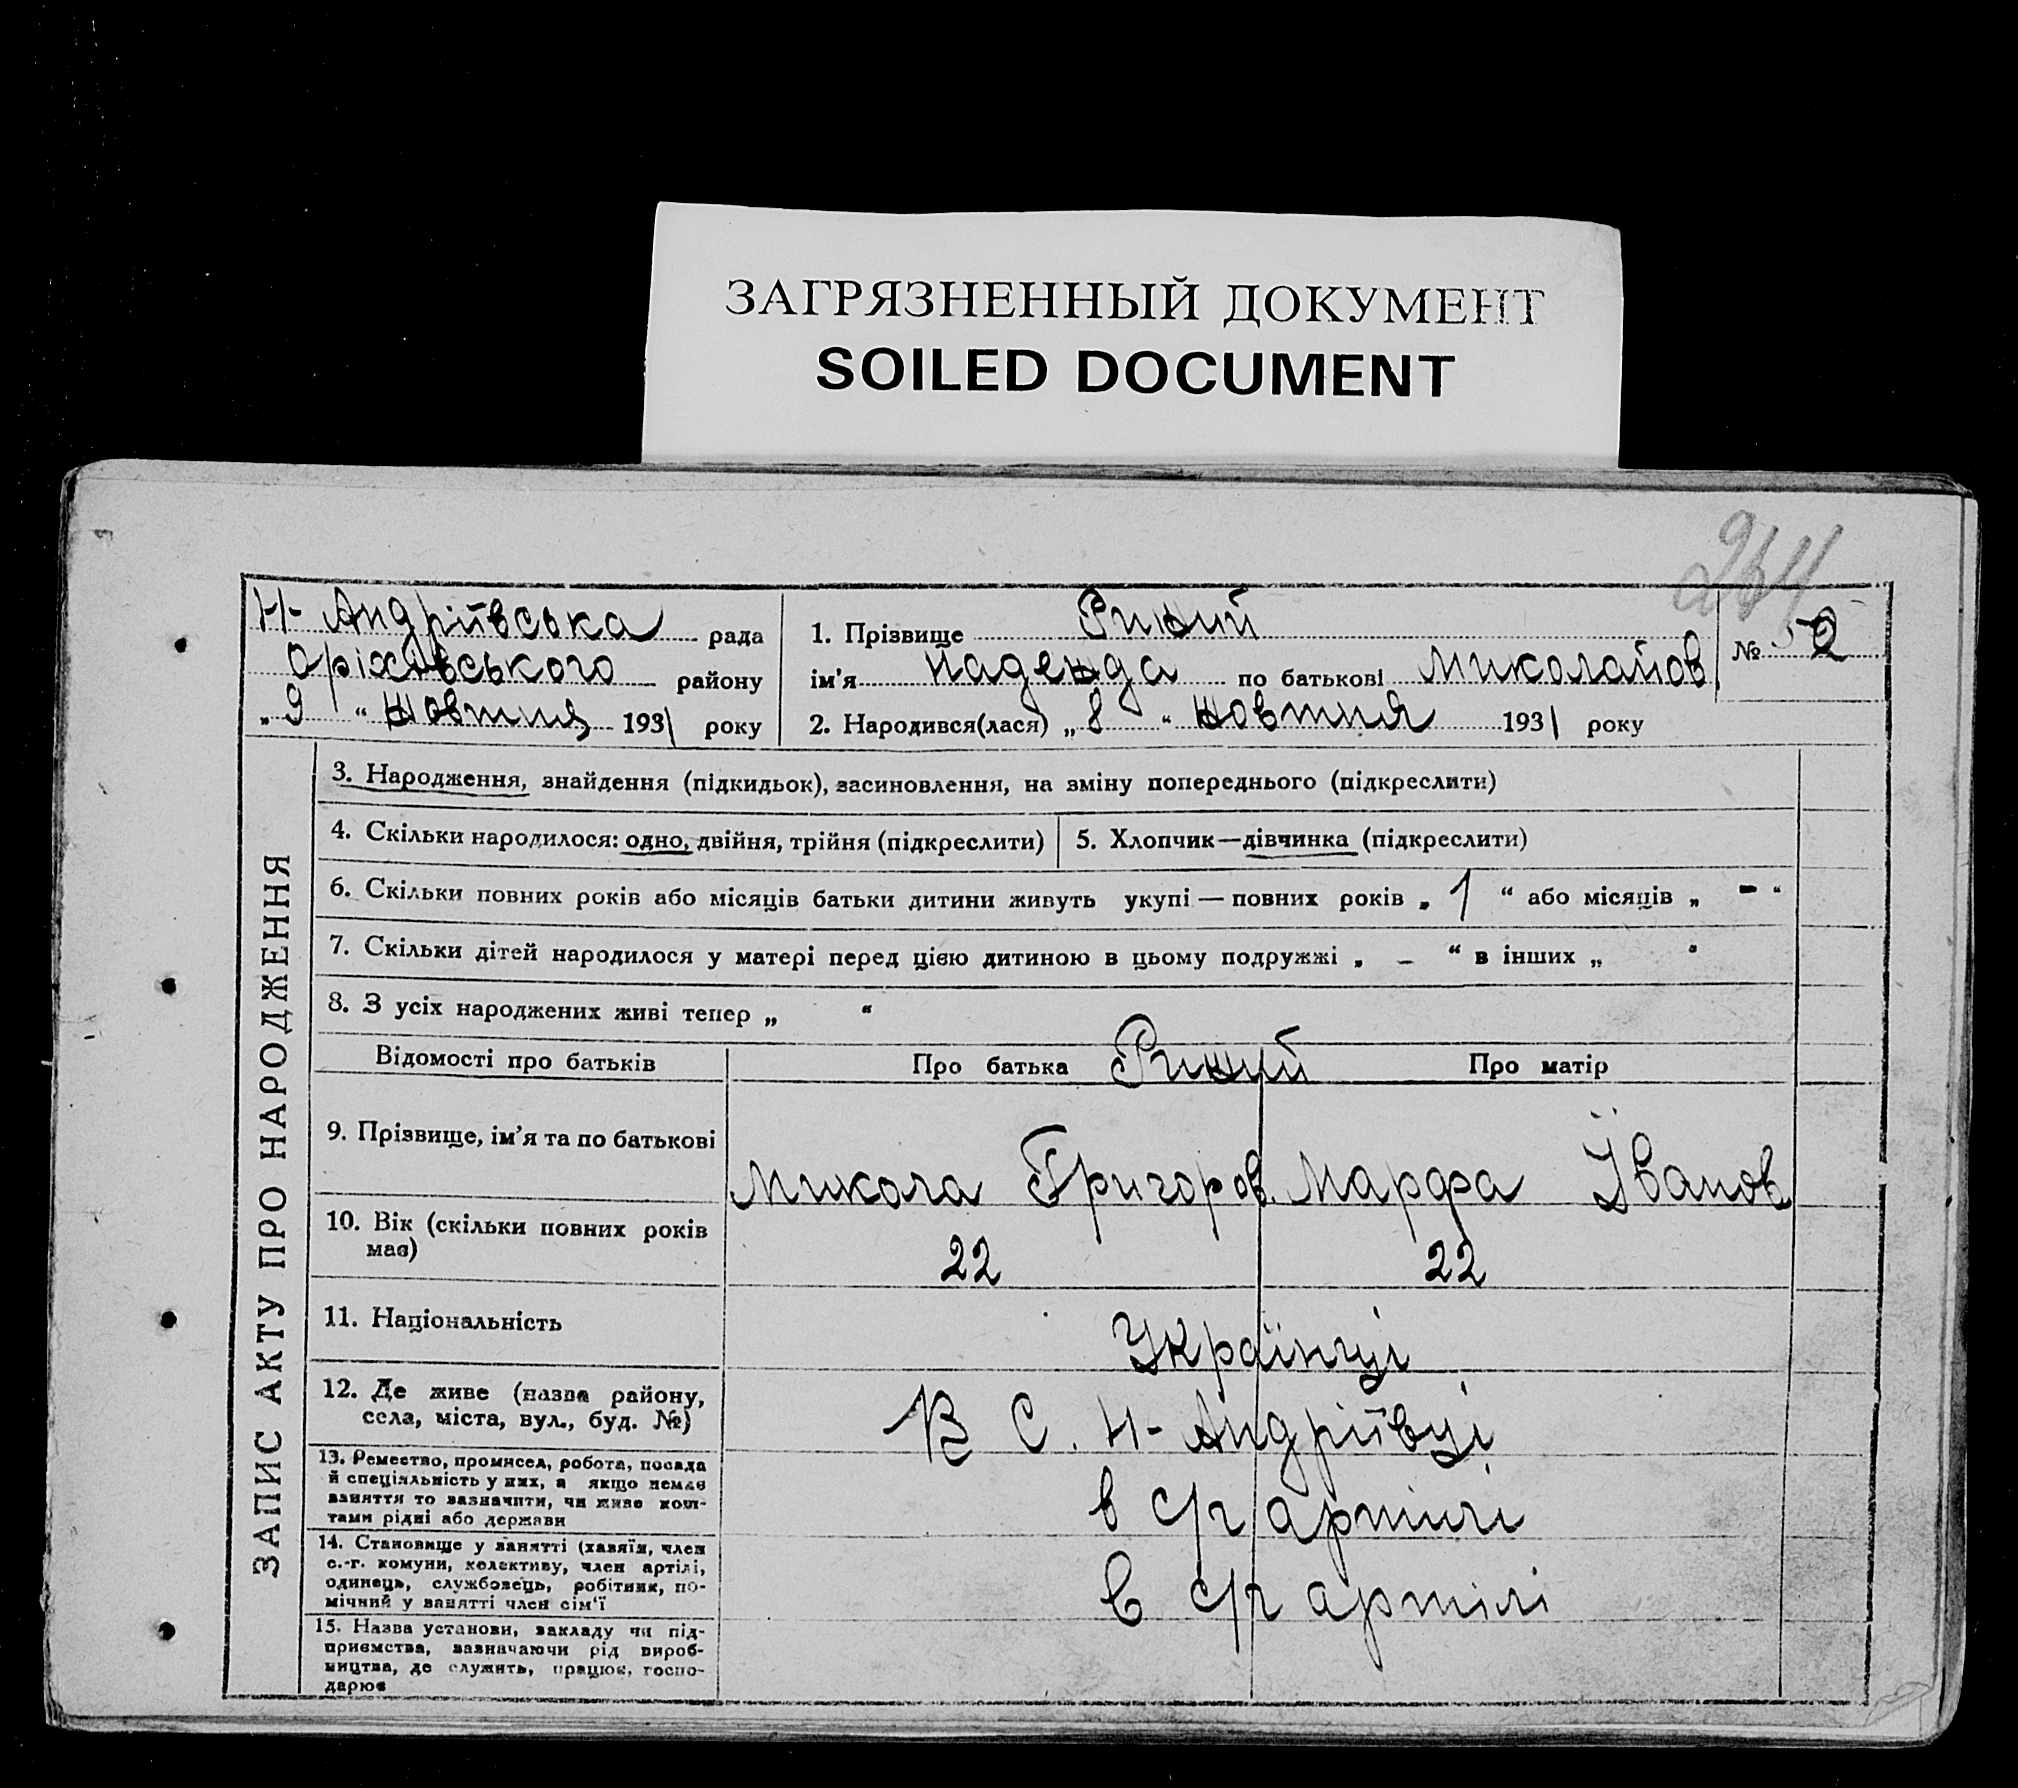 ЗАГРЯЗНЕННЫЙ ДОКУМЕНТ
SOILED DOCUMENT
Н-Андріївська рада
Оріхівського району
„ 9 “ жовтня 1931 року
1. Прізвище Рижий
ім’я Надежда по батькові Миколайов.
2. Народився(лася) „ 8 “ жовтня 1931 року
№ 52
ЗАПИС АКТУ ПРО НАРОДЖЕННЯ
3. Народження, знайдення (підкидьок), засиновлення, на зміну попереднього (підкреслити)
4. Скільки народилося: одно, двійня, трійня (підкреслити)
5. Хлопчик—дівчинка (підкреслити)
6. Скільки повних років або місяців батьки дитини живуть укупі — повних років „ 1 “ або місяців „ - “
7. Скільки дітей народилося у матері перед цією дитиною в цьому подружжі „ - “ в інших „ “
8. З усіх народжених живі тепер „ “
Відомості про батьків
Про батька Рижий Про матір
9. Прізвище, ім’я та по батькові
Микола Григоров. Марфа Іванов
10. Вік (скільки повних років
має)
22 22
11. Національність
Українці
12. Де живе (назва району,
села, міста, вул., буд. №)
В С. Н-Андріївці
13. Ремество, промисел, робота, посада
й спеціяльність у них, а якщо немає
заняття то зазначити, чи живе кош-
тами рідні або держави
в с/г артілі
14. Становище у занятті (хазяїн, член
с.-г. комуни, колективу, член артілі,
одинець, службовець, робітник, по-
мічний у занятті член сім‘ї
В с/г артілі
15. Назва установи, закладу чи під-
приємства, зазначаючи рід вироб-
ництва, де служить, працює, госпо-
дарює